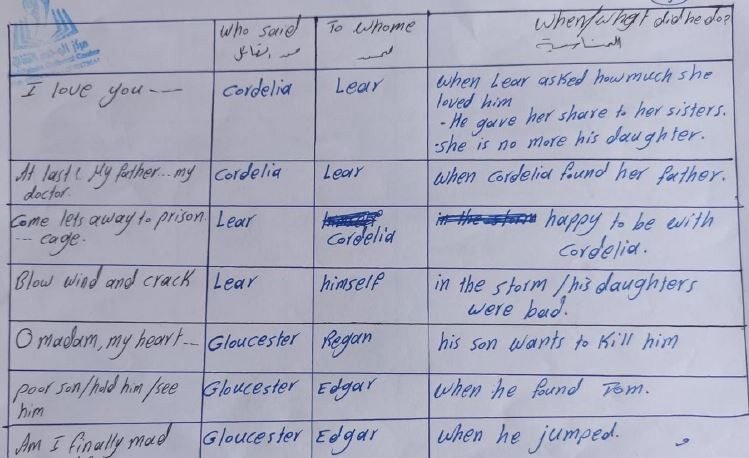 who said To whome When/what did he do?
من القائل لمن المناسبة
I love you --- Cordelia Lear when Lear asked how much she
loved him
- He gave her share to her sisters.
- she is no more his daughter.
At last! My father... my Cordelia Lear when Cordelia found her father.
doctor.
Come lets away to prison Lear happy to be with
--- cage. Cordelia Cordelia.
Blow wind and crack Lear himself in the storm / his daughters
were bad.
O madam, my heart -- Gloucester Regan his son wants to kill him
poor son/hold him/see Gloucester Edgar when he found Tom.
him
Am I finally mad Gloucester Edgar when he jumped.